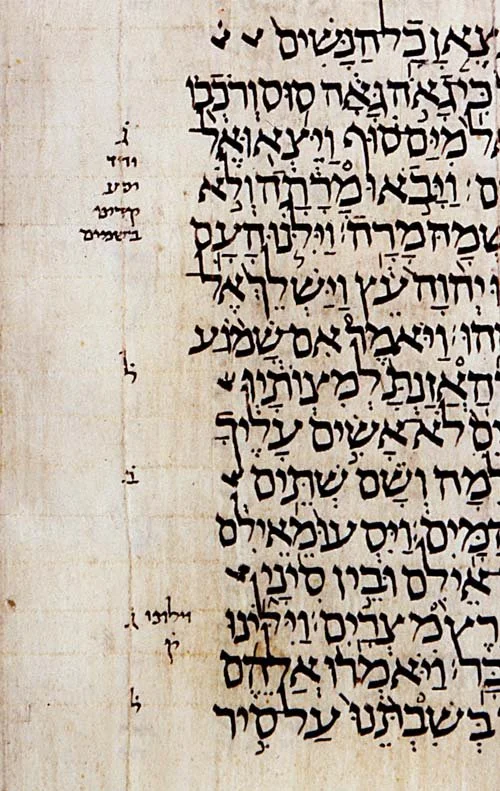 צֶאןָ כָל הַנָּשִׁים
כִּי גָאֹה גָּאָה סוּס וְרֹכְבוֹ
מִיַּם סוּף וַיֵּצְאוּ אֶל
ם׃ וַיָּבֹאוּ מָרָתָה וְלֹא
שְׁמָהּ מָרָה׃ וַיִּלֹּנוּ הָעָם
יְהוָה עֵץ וַיַּשְׁלֵךְ אֶל
הוּ׃ וַיֹּאמֶר אִם שָׁמוֹעַ
הַאֲזַנְתָּ לְמִצְוֹתָיו
ים לֹא אָשִׂים עָלֶיךָ
לִמָה וְשָׁם שְׁתֵּים
הַמָּיִם׃ וַיִּסְעוּ מֵאֵילִם
אֵילִם וּבֵין סִינָי
רֶץ מִצְרָיִם׃ וַיִּלִּינוּ
בָּר׃ וַיֹּאמְרוּ אֲלֵהֶם
בְּשִׁבְתֵּנוּ עַל סִיר
ג̇
יסע
קדים
בשמים
ל̇
ב̇
ג̇ וילונו
ק̇
ל̇